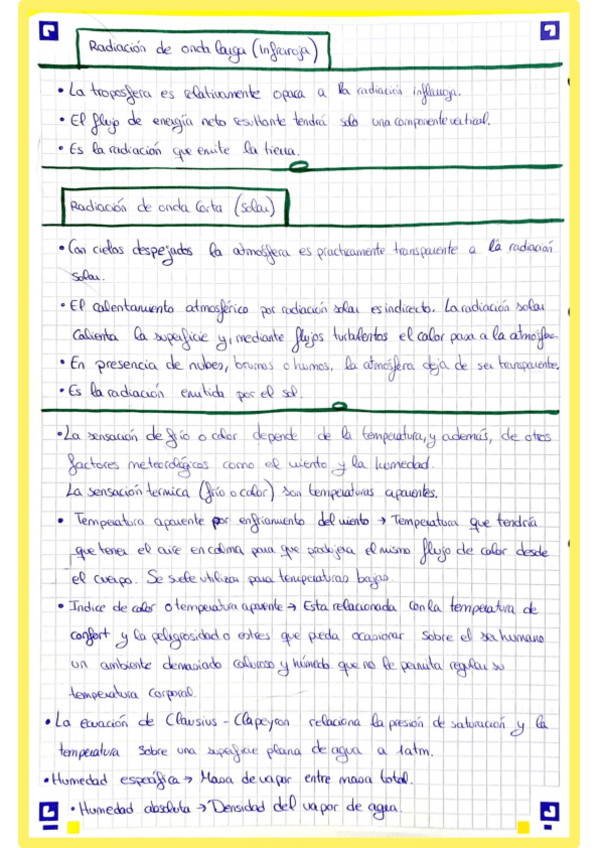 Radiación de onda larga (Infrarroja)
• La troposfera es relativamente opaca a la radiación infrarroja.
• El flujo de energía neto resultante tendrá solo una componente vertical.
• Es la radiación que emite la tierra.
Radiación de onda corta (solar)
• Con cielos despejados la atmósfera es practicamente transparente a la radiación
solar.
• El calentamiento atmosférico por radiación solar es indirecto. La radiación solar
calienta la superficie y, mediante flujos turbulentos el calor pasa a la atmósfera.
• En presencia de nubes, brumas o humos, la atmósfera deja de ser transparente.
• Es la radiación emitida por el sol.
• La sensación de frío o calor depende de la temperatura, y además, de otros
factores meteorológicos como el viento y la humedad.
La sensación termica (frío o calor) son temperaturas aparentes.
• Temperatura aparente por enfriamiento del viento → Temperatura que tendría
que tener el aire en calma para que produjera el mismo flujo de calor desde
el cuerpo. Se suele utilizar para temperaturas bajas.
• Indice de calor o temperatura aparente → Esta relacionada con la temperatura de
confort y la peligrosidad o estres que pueda ocasionar sobre el ser humano
un ambiente demasiado caluroso y húmedo que no le permita regular su
temperatura corporal.
• La ecuación de Clausius - Clapeyron relaciona la presión de saturación y la
temperatura sobre una superficie plana de agua a 1atm.
• Humedad específica → Masa de vapor entre masa total.
• Humedad absoluta → Densidad del vapor de agua.